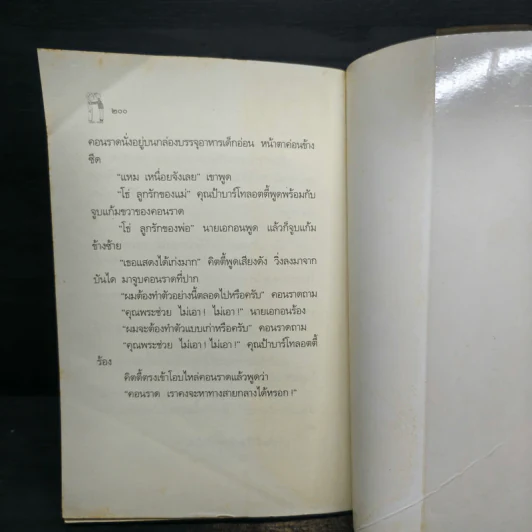 ๒๐๐
คอนราดนั่งอยู่บนกล่องบรรจุอาหารเด็กอ่อน หน้าตาค่อนข้าง
ซีด
“แหม เหนื่อยจังเลย” เขาพูด
“โธ่ ลูกรักของแม่” คุณป้าบาร์โทลอตตี้พูดพร้อมกับ
จูบแก้มขวาของคอนราด
“โธ่ ลูกรักของพ่อ” นายเอกอนพูด แล้วก็จูบแก้ม
ข้างซ้าย
“เธอแสดงได้เก่งมาก” คิตตี้พูดเสียงดัง วิ่งลงมาจาก
บันได มาจูบคอนราดที่ปาก
“ผมต้องทำตัวอย่างนี้ตลอดไปหรือครับ” คอนราดถาม
“คุณพระช่วย ไม่เอา! ไม่เอา!” นายเอกอนร้อง
“ผมจะต้องทำตัวแบบเก่าหรือครับ” คอนราดถาม
“คุณพระช่วย ไม่เอา! ไม่เอา!” คุณป้าบาร์โทลอตตี้
ร้อง
คิตตี้ตรงเข้าโอบไหล่คอนราดแล้วพูดว่า
“คอนราด เราคงจะหาทางสายกลางได้หรอก!”